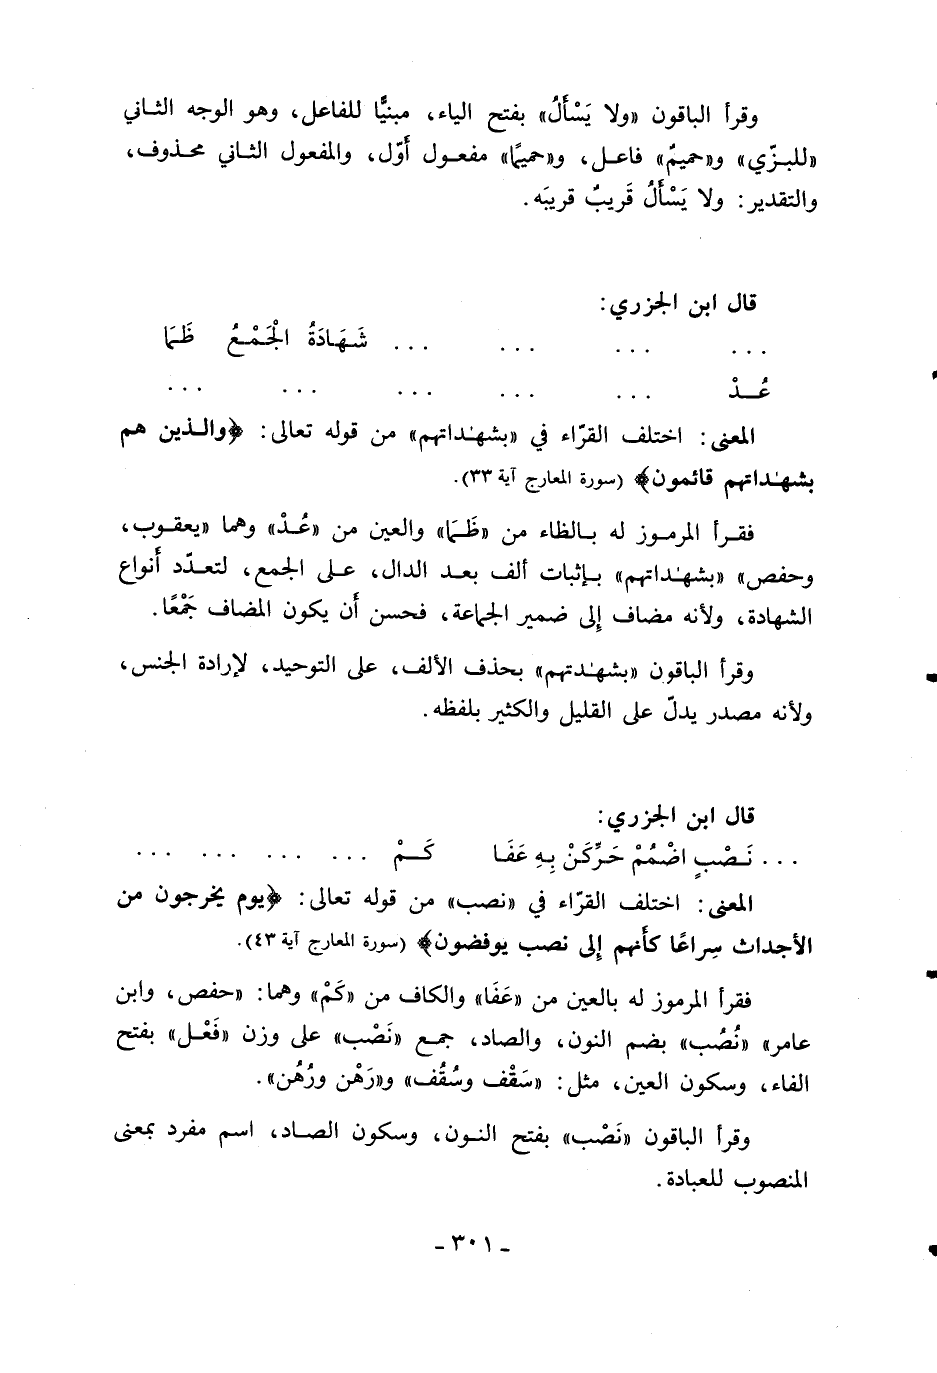 وقرأ الباقون «ولا يَسْأَلُ» بفتح الياء، مبنيًّا للفاعل، وهو الوجه الثاني
«للبزّي» و«حميمٌ» فاعل، و«حميمًا» مفعول أَوّل، والمفعول الثاني محذوف،
والتقدير: ولا يَسْأَلُ قَريبٌ قريبَه.
قال ابن الجزري:
... ... ... ... شَهَادَةُ الْجَمْعُ ظَمَا
عُدْ ... ... ... ... ...
المعنى: اختلف القرّاء في «بشهـٰداتهم» من قوله تعالى: ﴿والذين هم
بشهـٰداتهم قائمون﴾ (سورة المعارج آية ٣٣).
فقرأ المرموز له بالظاء من «ظَمَا» والعين من «عُدْ» وهما «يعقوب،
وحفص» «بشهـٰداتهم» بإثبات ألف بعد الدال، على الجمع، لتعدّد أنواع
الشهادة، ولأنه مضاف إلى ضمير الجماعة، فحسن أن يكون المضاف جَمْعًا.
وقرأ الباقون «بشهـٰدتهم» بحذف الألف، على التوحيد، لإرادة الجنس،
ولأنه مصدر يدلّ على القليل والكثير بلفظه.
قال ابن الجزري:
... نَصْبٍ اضْمُمْ حَرِّكَنْ بِهِ عَفَا كَمْ ... ... ... ...
المعنى: اختلف القرّاء في «نصب» من قوله تعالى: ﴿يوم يخرجون من
الأجداث سِراعًا كأنهم إلى نصب يوفضون﴾ (سورة المعارج آية ٤٣).
فقرأ المرموز له بالعين من «عَفَا» والكاف من «كَمْ» وهما: «حفص، وابن
عامر» «نُصُب» بضم النون، والصاد، جمع «نَصْب» على وزن «فَعْل» بفتح
الفاء، وسكون العين، مثل: «سَقْف وسُقُف» و«رَهْن ورُهُن».
وقرأ الباقون «نَصْب» بفتح النون، وسكون الصاد، اسم مفرد بمعنى
المنصوب للعبادة.
- ٣٠١ -